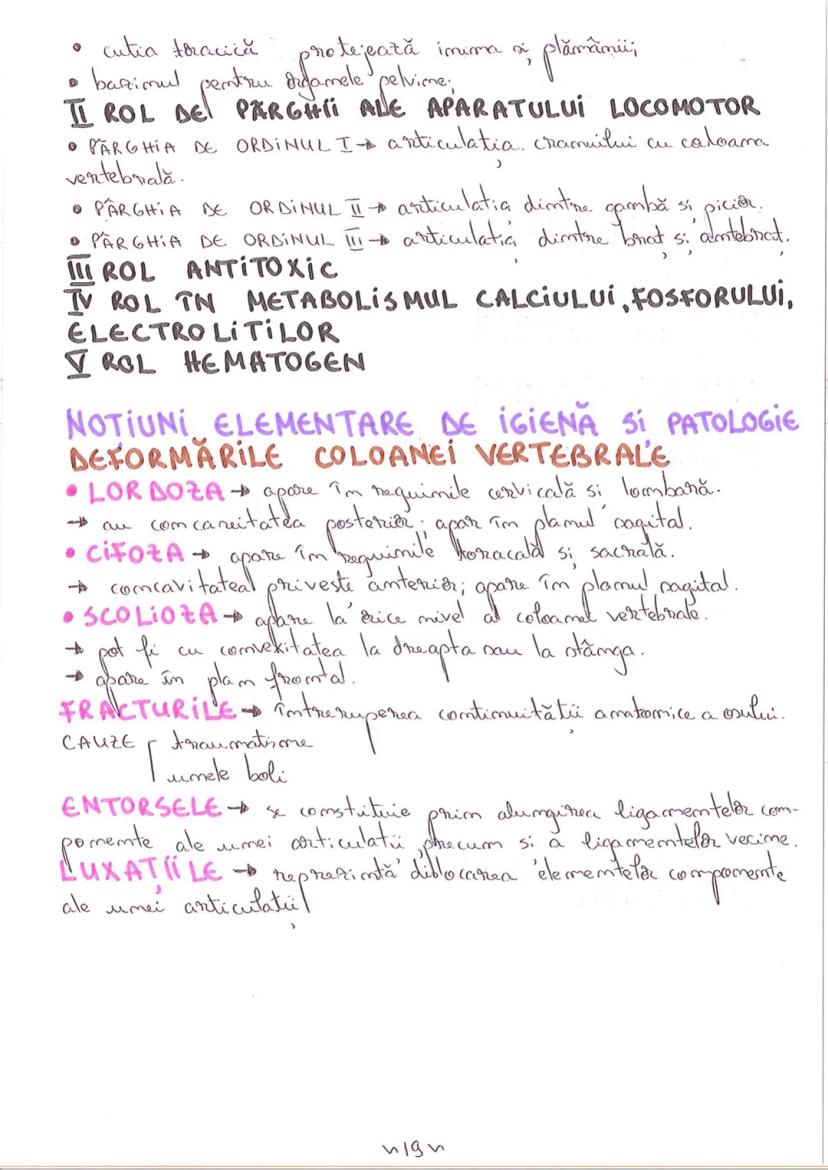 • cutia toracică protejează inima și plămânii;
• bazinul pentru organele pelvine;
II ROL DE PÂRGHII ALE APARATULUI LOCOMOTOR
• PÂRGHIA DE ORDINUL I → articulația craniului cu coloana
vertebrală.
• PÂRGHIA DE ORDINUL II → articulația dintre gambă și picior.
• PÂRGHIA DE ORDINUL III → articulația dintre braț și antebraț.
III ROL ANTITOXIC
IV ROL ÎN METABOLISMUL CALCIULUI, FOSFORULUI,
ELECTROLITILOR
V ROL HEMATOGEN
NOTIUNI ELEMENTARE DE IGIENĂ SI PATOLOGIE
DEFORMĂRILE COLOANEI VERTEBRALE
• LORDOZA → apare în regiunile cervicală si lombară.
→ au concaveitatea posterior; apar în planul sagital.
• CIFOZA → apare în regiunile toracală și sacrală.
→ concavitateal privește anterior; apare în planul sagital.
• SCOLIOZA → apare la orice nivel al coloanei vertebrale.
→ pot fi cu convexitatea la dreapta sau la stânga.
→ apare în plan frontal.
FRACTURILE → întreruperea continuității anatomice a osului.
CAUZE traumatisme
unele boli
ENTORSELE → se constituie prin alungirea ligamentelor com-
ponente ale unei articulatii, precum si a ligamentelor vecine.
LUXAȚIILE → reprezintă dislocarea elementelor componente
ale unei articulații
~19~